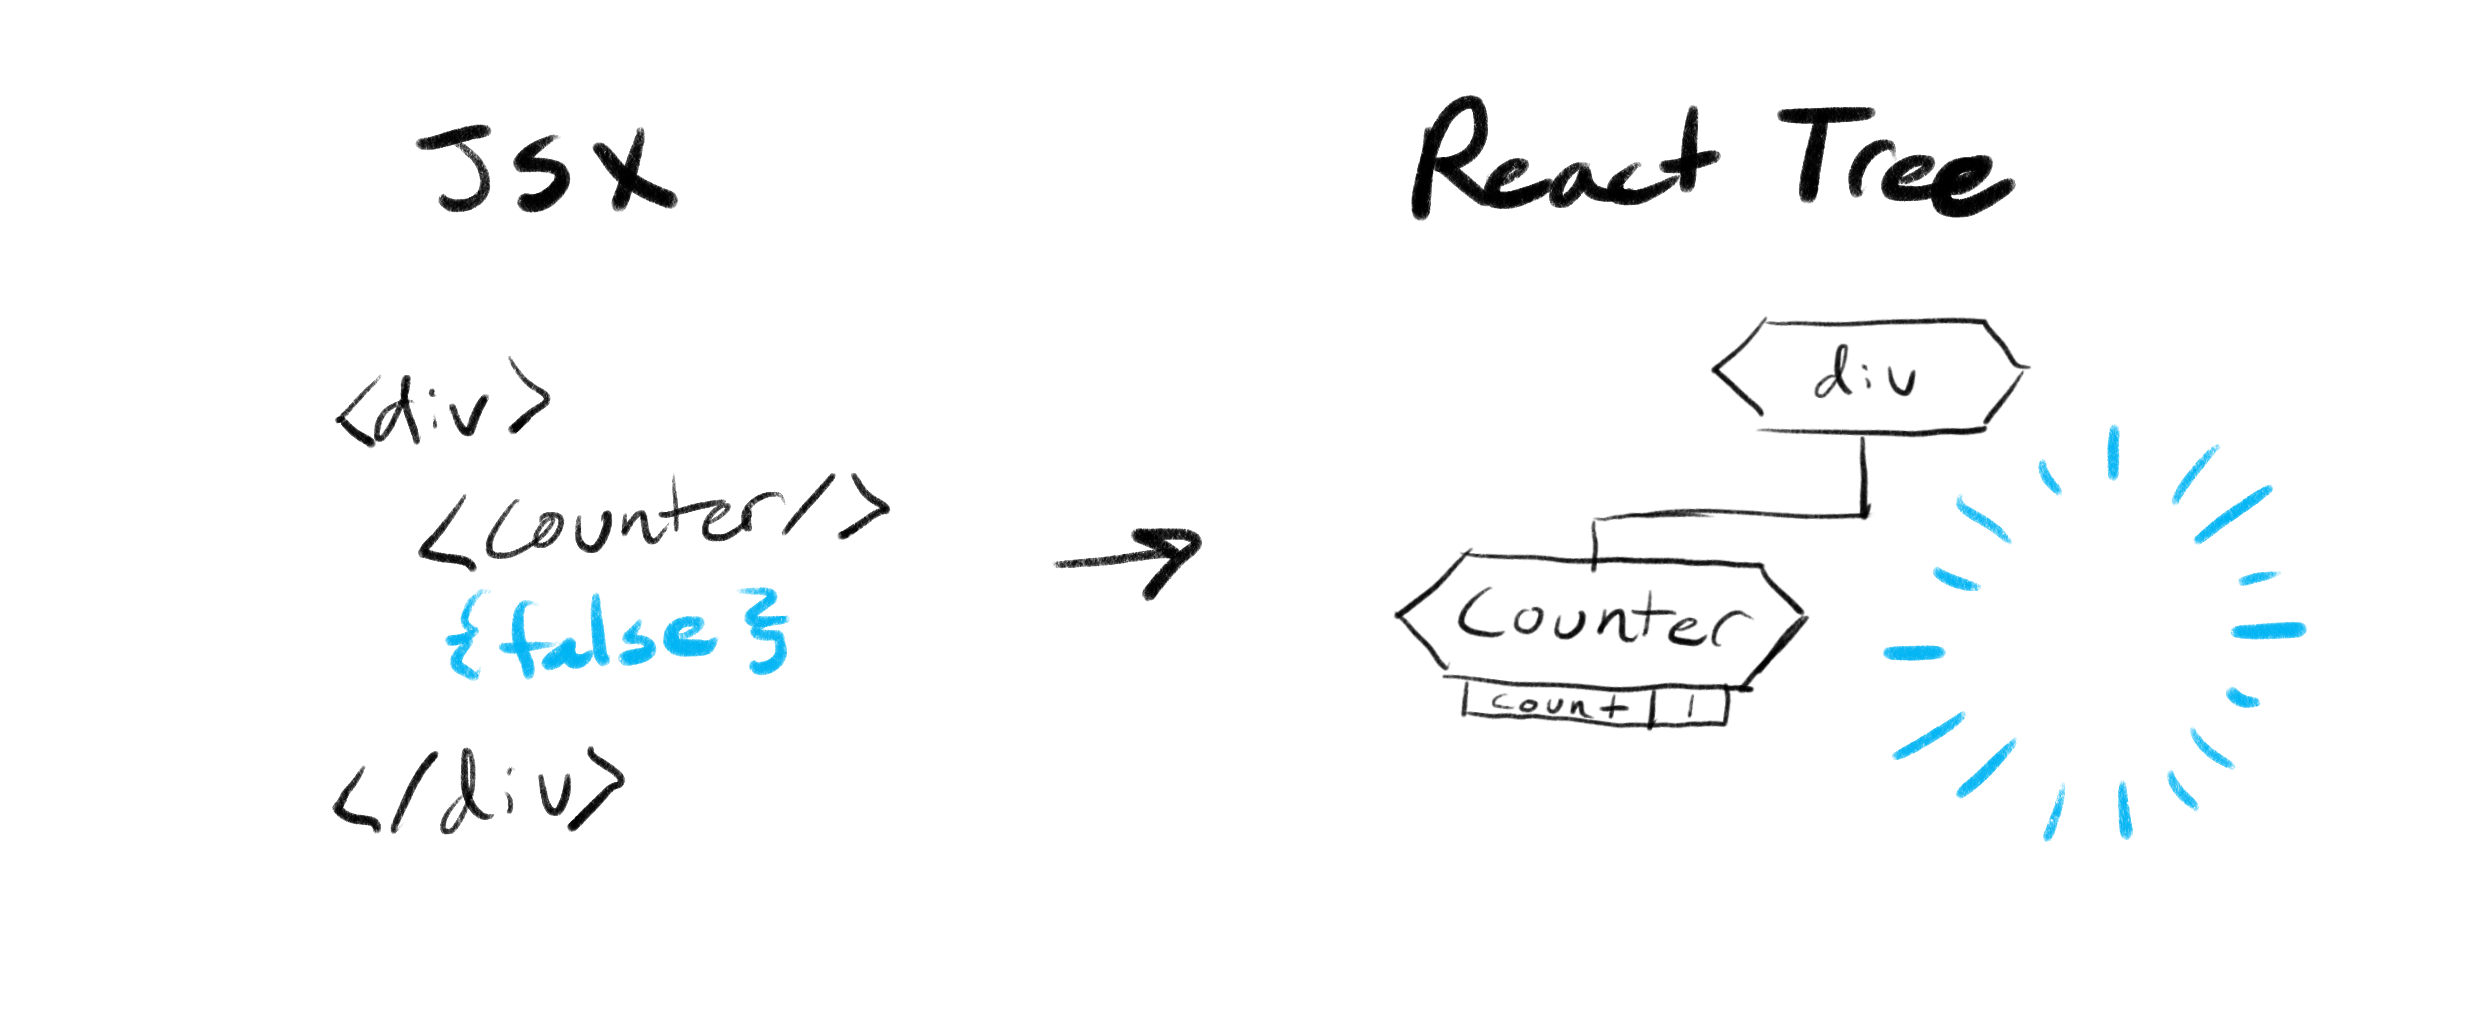 JSX
<div>
<Counter/>
{false}
</div>
React Tree
div
Counter
count 1